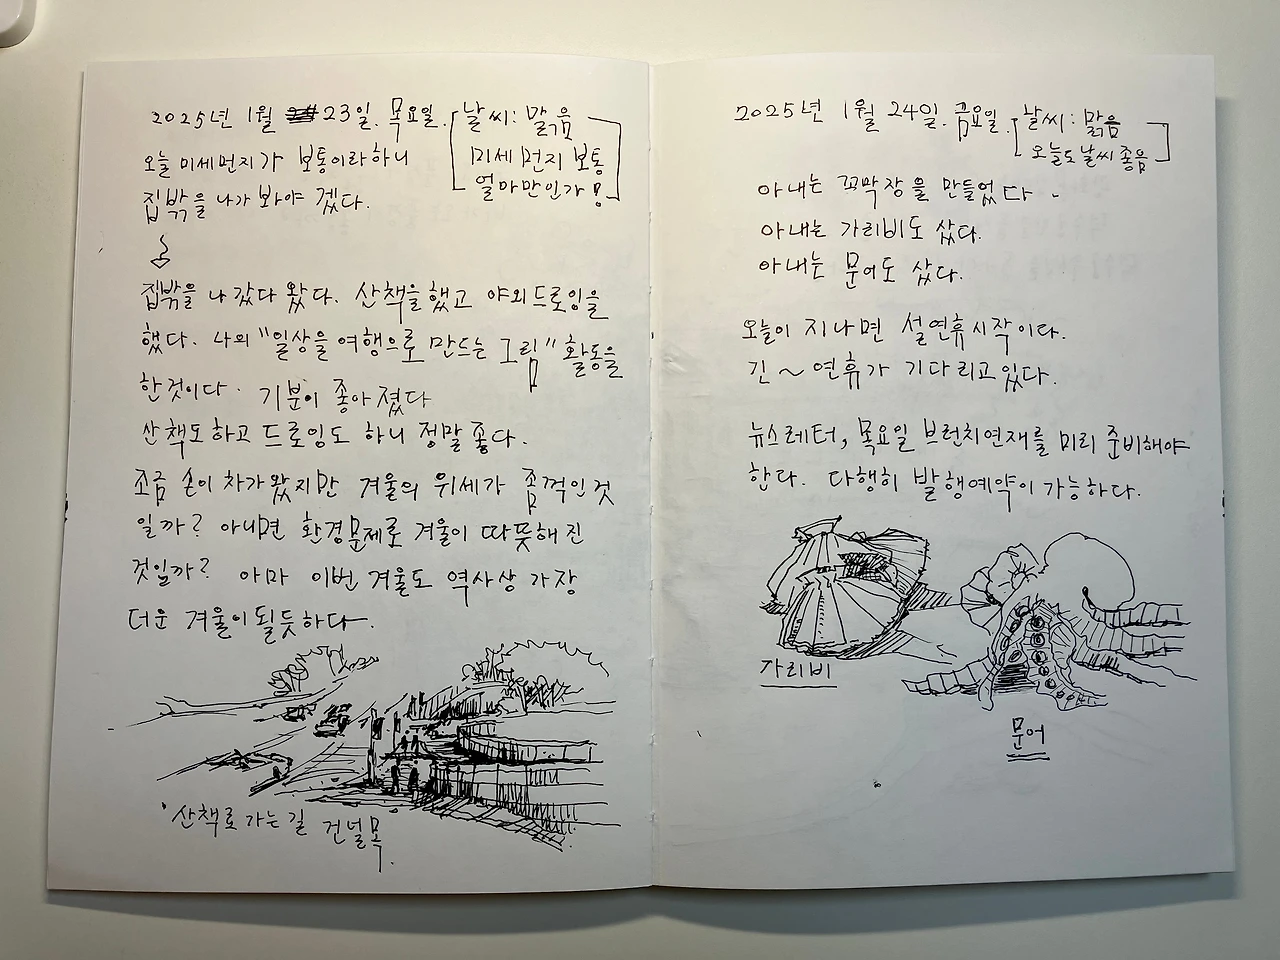 2025년 1월 23일. 목요일.
날씨: 맑음
미세먼지 보통
얼마만인가!
오늘 미세먼지가 보통이라하니
집밖을 나가 봐야 겠다.
집밖을 나갔다 왔다. 산책을 했고 야외드로잉을
했다. 나의 "일상을 여행으로 만드는 그림" 활동을
한것이다. 기분이 좋아졌다
산책도하고 드로잉도 하니 정말 좋다.
조금 손이 차가왔지만 겨울의 위세가 좀 꺽인것
일까? 아니면 환경문제로 겨울이 따뜻해진
것일까? 아마 이번 겨울도 역사상 가장
더운 겨울이 될듯하다.
산책로 가는길 건널목.
2025년 1월 24일. 금요일.
날씨: 맑음
오늘도 날씨 좋음
아내는 꼬막장을 만들었다.
아내는 가리비도 샀다.
아내는 문어도 샀다.
오늘이 지나면 설연휴시작이다.
긴~연휴가 기다리고있다.
뉴스레터, 목요일 브런치연재를 미리 준비해야
한다. 다행히 발행예약이 가능하다.
가리비
문어